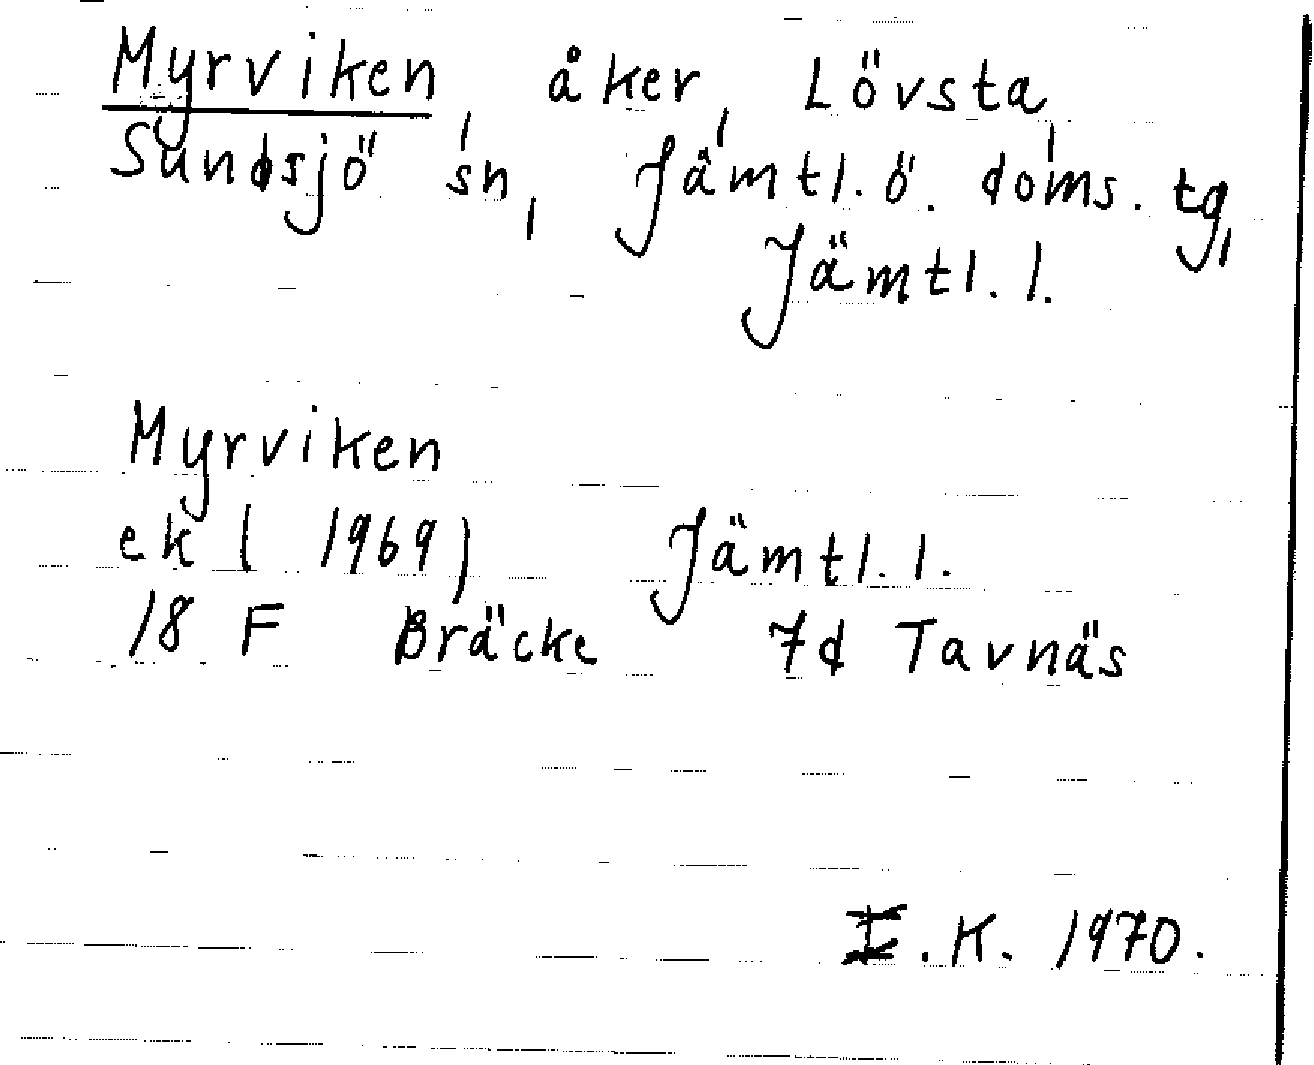 Myrviken, åker, Lövsta,
Sundsjö sn, Jämtl. ö. doms. tg,
Jämtl. l.
Myrviken
ek ( 1969) Jämtl. l.
18 F Bräcke 7d Tavnäs
I.K. 1970.